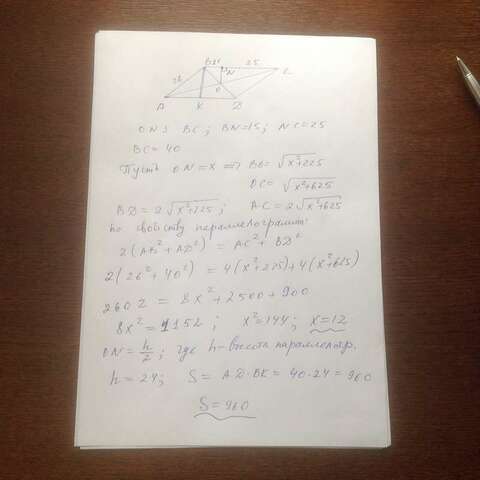 B 15 N 25 C
26 O
A K D
ON ⊥ BC; BN=15; NC=25
BC=40
Пусть ON=x ⟹ BO=√x²+225
OC=√x²+625
BD=2√x²+225; AC=2√x²+625
По свойству параллелограмма:
2(AB²+AD²)=AC²+BD²
2(26²+40²)=4(x²+225)+4(x²+625)
2602=8x²+2500+900
8x²=1152; x²=144; x=12
ON=h/2; где h-высота параллелогр.
h=24; S=AD·BK=40·24=960
S=960